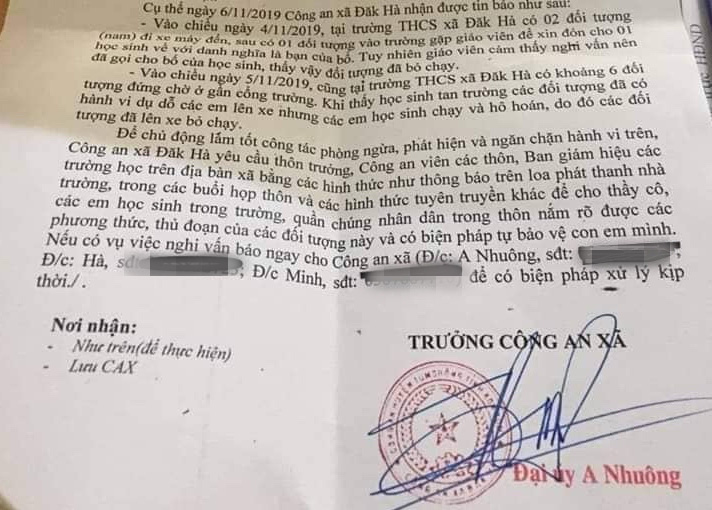 Cụ thể ngày 6/11/2019 Công an xã Đăk Hà nhận được tin báo như sau:
- Vào chiều ngày 4/11/2019, tại trường THCS xã Đăk Hà có 02 đối tượng
(nam) đi xe máy đến, sau có 01 đối tượng vào trường gặp giáo viên để xin đón cho 01
học sinh về với danh nghĩa là bạn của bố. Tuy nhiên giáo viên cảm thấy nghi vấn nên
đã gọi cho bố của học sinh, thấy vậy đối tượng đã bỏ chạy.
- Vào chiều ngày 5/11/2019, cũng tại trường THCS xã Đăk Hà có khoảng 6 đối
tượng đứng chờ ở gần cổng trường. Khi thấy học sinh tan trường các đối tượng đã có
hành vi dụ dỗ các em lên xe nhưng các em học sinh chạy và hô hoán, do đó các đối
tượng đã lên xe bỏ chạy.
Để chủ động lắm tốt công tác phòng ngừa, phát hiện và ngăn chặn hành vi trên,
Công an xã Đăk Hà yêu cầu thôn trưởng, Công an viên các thôn, Ban giám hiệu các
trường học trên địa bàn xã bằng các hình thức như thông báo trên loa phát thanh nhà
trường, trong các buổi họp thôn và các hình thức tuyên truyền khác để cho thầy cô,
các em học sinh trong trường, quần chúng nhân dân trong thôn nắm rõ được các
phương thức, thủ đoạn của các đối tượng này và có biện pháp tự bảo vệ con em mình.
Nếu có vụ việc nghi vấn báo ngay cho Công an xã (Đ/c: A Nhuông, sđt:
Đ/c: Hà, sđt: ; Đ/c Minh, sđt: để có biện pháp xử lý kịp
thời./.
Nơi nhận:
- Như trên(để thực hiện)
- Lưu CAX
TRƯỞNG CÔNG AN XÃ
Đại úy A Nhuông